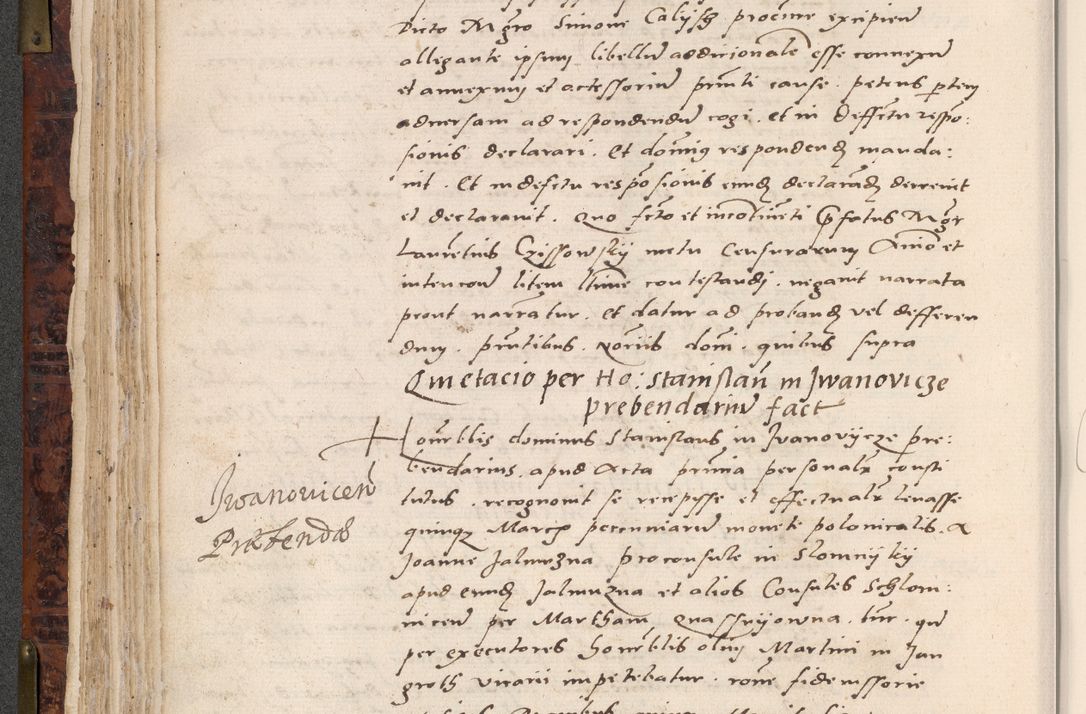 Dicto Mgro Simone Calissz procure excipien
allegante ipsum libellum addicionale esse connexum
et annexum et accessorium prnti cause. petens ptem
adversam ad respondendum cogi. et in deffectu respo:
sionis declarari. Et dominus respondendum manda:
vit. Et in defectu resposionis eundem declarandum decrevit
et declaravit. Quo fcto et incontineti pfatus Mgr
Laurētius Czissowskij metu Censurarum Animo et
intencone litem ltime contestandi. negavit narrata
prout narratur. Et datur ad proband vel differen
dum. prntibus. Notariis domi. quibus supra
Quietacio per Ho: Stanislaū in Iwanovicze
prebendarium fact
Honrblis dominus Stanislaus in Ivanovijcze pre:
bendarius. apud Acta prnia personalr consti
tutus. recognovit se recepisse et effectualr levasse
quinq Marcas pecuniarum monete polonicalis. A
Joanne Jalmuzna proconsule in Slomnijkij
apud eundem Jalmuzna et alios Consules Schlom:
nicen per Martham Quassnijowna. bur. qu
per executores honrblis olim Martini in Jan
groth vicarii impetebatur. rone fideiussorie
Iwanovicen
Præbenda